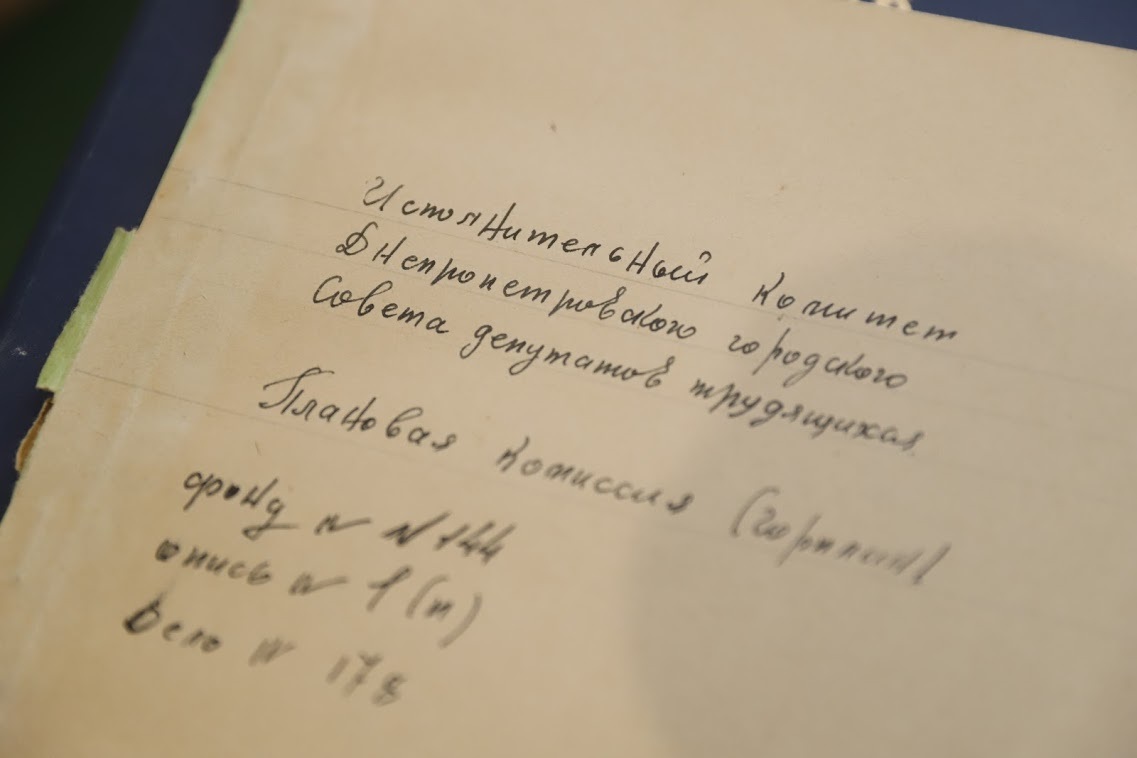 Исполнительный комитет
Днепропетровского городского
Совета депутатов трудящихся
Плановая комиссия (горплан)
фонд №
опись № 1 (п)
Дело № 178